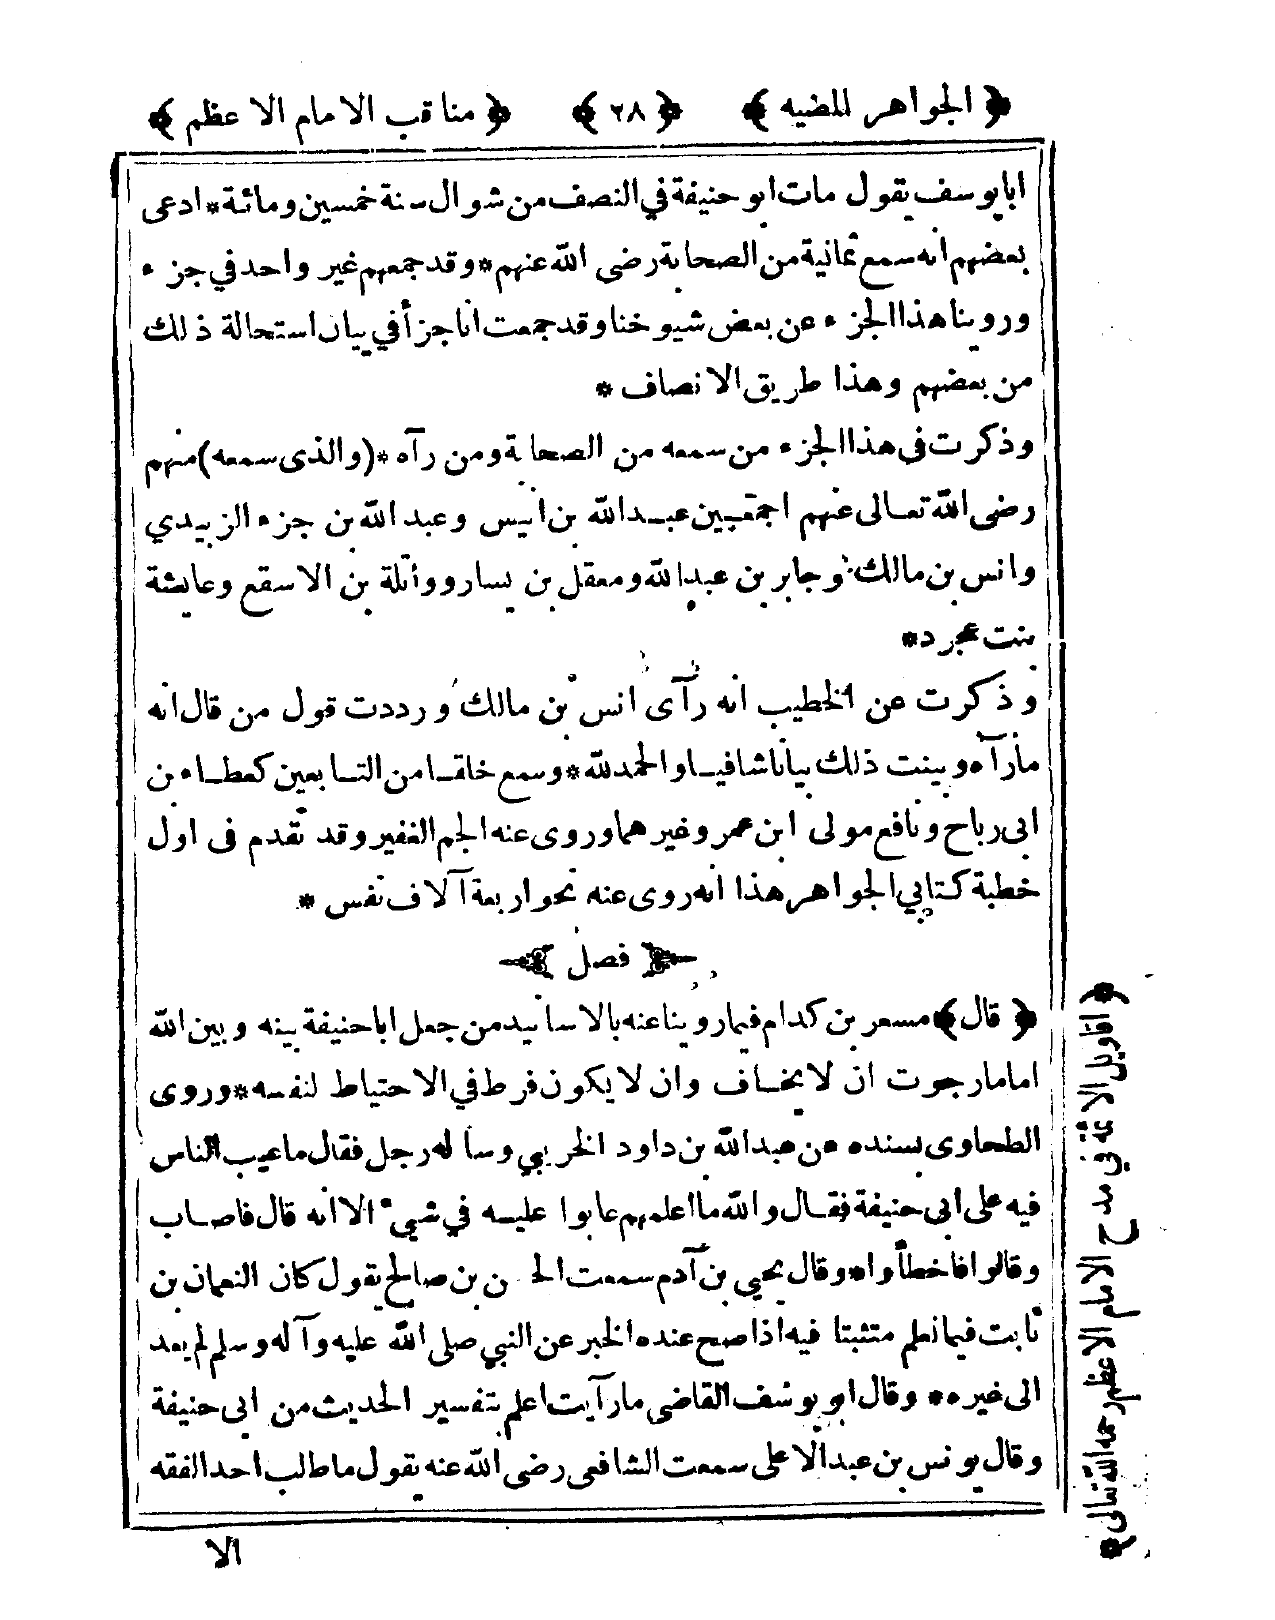 ﴿ الجواهر المضيه ﴾ ﴿ ٢٨ ﴾ ﴿ مناقب الامام الاعظم ﴾
ابايوسف يقول مات ابوحنيفة في النصف من شوال سنة خمسين ومائة * ادعى
بعضهم انه سمع ثمانية من الصحابة رضى الله عنهم * وقد جمعهم غير واحد في جزء
وروينا هذا الجزء عن بعض شيوخنا وقد جمعت انا جزأ في بيان استحالة ذلك
من بعضهم وهذا طريق الانصاف *
وذكرت فى هذا الجزء من سمعه من الصحابة ومن رآه * (والذى سمعه) منهم
رضى الله تعالى عنهم اجمعين عبدالله بن انيس وعبد الله بن جزء الزبيدي
وانس بن مالك وجابر بن عبدالله ومعقل بن يسار وواثلة بن الاسقع وعايشة
بنت عجرد *
وذكرت عن الخطيب انه رآى انس بن مالك ورددت قول من قال انه
مارآه وبينت ذلك بيانا شافيا والحمد لله * وسمع خلقا من التابعين كعطاء بن
ابى رباح ونافع مولى ابن عمر وغيرهما وروى عنه الجم الغفير وقد تقدم فى اول
خطبة كتابي الجواهر هذا انه روى عنه نحو اربعة آلاف نفس *
فصل
﴿ قال ﴾ مسعر بن كدام فيما روينا عنه بالاسانيد من جعل اباحنيفة بينه وبين الله
اماما رجوت ان لا يخاف وان لا يكون فرط في الاحتياط لنفسه * وروى
الطحاوى بسنده عن عبدالله بن داود الخريبي وسأله رجل فقال ما عيب الناس
فيه على ابى حنيفة فقال والله ما اعلمهم عابوا عليه في شيء الا انه قال فاصاب
وقالوا فاخطأوا * وقال يحيى بن آدم سمعت الحسن بن صالح يقول كان النعمان بن
ثابت فيما نعلم متثبتا فيه اذا صح عنده الخبر عن النبي صلى الله عليه وآله وسلم لم يعد
الى غيره * وقال ابو يوسف القاضى مارآيت اعلم بتفسير الحديث من ابى حنيفة
وقال يونس بن عبدالاعلى سمعت الشافعى رضى الله عنه يقول ما طالب احد الفقه
الا
﴿ اقاويل الائمة في مدح الامام الاعظم رحمه الله تعالى ﴾